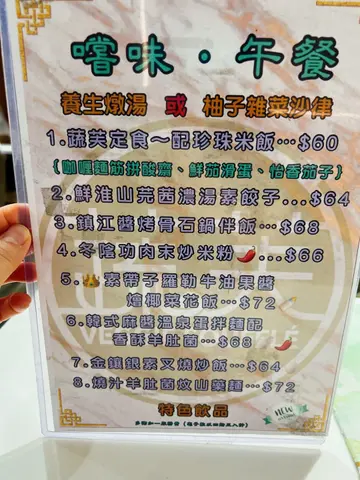 嚐味·午餐
養生燉湯 或 柚子雜菜沙律
1.蔬芙定食～配珍珠米飯…$60
(咖喱麵筋拼酸齋、鮮茄滑蛋、怡香茄子)
2.鮮淮山芫茜濃湯素餃子…$64
3.鎮江醬烤骨石鍋伴飯…$68
4.冬喰功肉末炒米粉…$66
5.素帶子羅勒牛油果醬
燴椰菜花飯…$72
6.韓式麻醬溫泉蛋拌麵配
香酥羊肚菌…$68
7.金鑲銀素叉燒炒飯…$64
8.燒汁羊肚菌炆山藥麵…$72
特色飲品
NEW